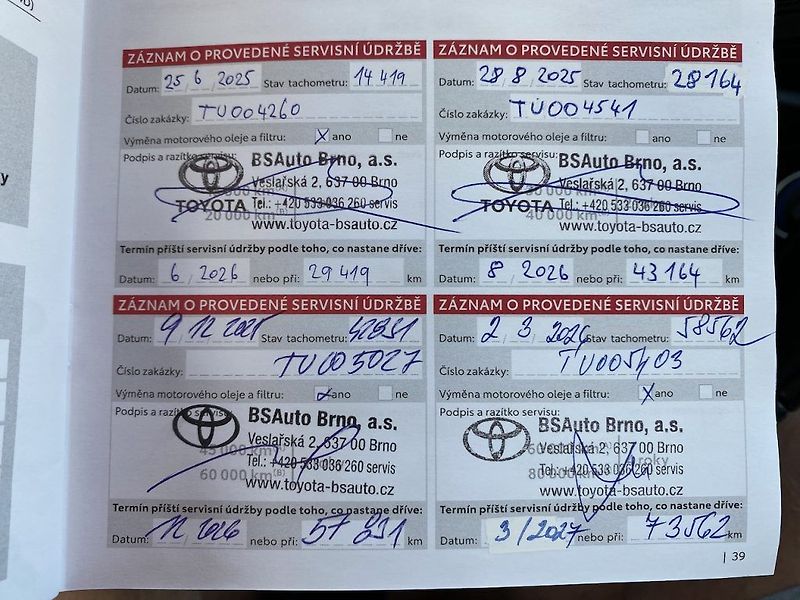 ZÁZNAM O PROVEDENÉ SERVISNÍ ÚDRŽBĚ
Datum: 25 6 2025 Stav tachometru: 14 419
Číslo zakázky: TU004260
Výměna motorového oleje a filtru: X ano ne
Podpis a razítko servisu:
BSAuto Brno, a.s.
Veslařská 2, 637 00 Brno
TOYOTA Tel.: +420 533 036 260 servis
20 000 km
www.toyota-bsauto.cz
Termín příští servisní údržby podle toho, co nastane dříve:
Datum: 6 2026 nebo při: 29 419 km
ZÁZNAM O PROVEDENÉ SERVISNÍ ÚDRŽBĚ
Datum: 28 8 2025 Stav tachometru: 28 164
Číslo zakázky: TU004541
Výměna motorového oleje a filtru: ano ne
Podpis a razítko servisu:
BSAuto Brno, a.s.
Veslařská 2, 637 00 Brno
TOYOTA Tel.: +420 533 036 260 servis
40 000 km
www.toyota-bsauto.cz
Termín příští servisní údržby podle toho, co nastane dříve:
Datum: 8 2026 nebo při: 43 164 km
ZÁZNAM O PROVEDENÉ SERVISNÍ ÚDRŽBĚ
Datum: 9 12 2025 Stav tachometru:
Číslo zakázky: TU005027
Výměna motorového oleje a filtru: X ano ne
Podpis a razítko servisu:
BSAuto Brno, a.s.
Veslařská 2, 637 00 Brno
45 000 km
Tel.: +420 533 036 260 servis
60 000 km
www.toyota-bsauto.cz
Termín příští servisní údržby podle toho, co nastane dříve:
Datum: 12 2026 nebo při: km
ZÁZNAM O PROVEDENÉ SERVISNÍ ÚDRŽBĚ
Datum: 2 3 2026 Stav tachometru: 58562
Číslo zakázky: TU005403
Výměna motorového oleje a filtru: X ano ne
Podpis a razítko servisu:
BSAuto Brno, a.s.
Veslařská 2, 637 00 Brno
roky
Tel.: +420 533 036 260 servis
80 000 km
www.toyota-bsauto.cz
Termín příští servisní údržby podle toho, co nastane dříve:
Datum: 3/2027 nebo při: 73562 km
| 39